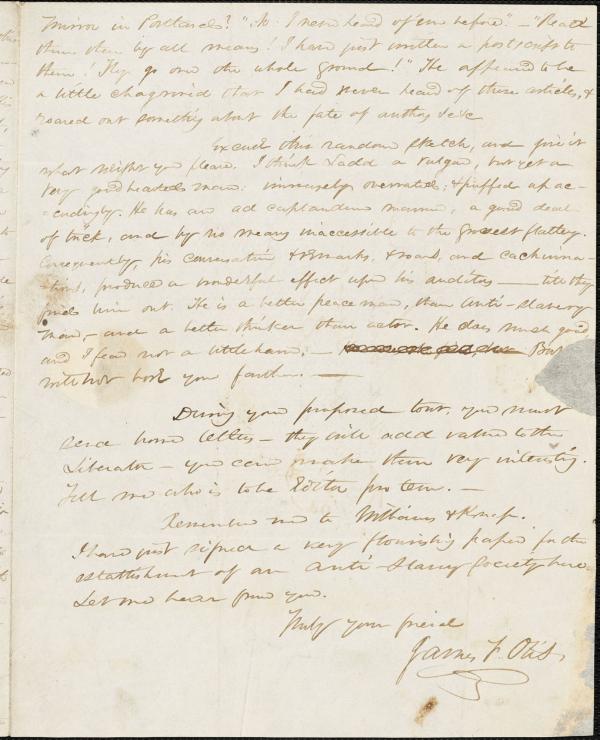 Mirror in Portland?" "No: I never heard of them before" – "Read
them then by all means! I have just written a postscript to
them! They go over the whole ground!" He appeared to be
a little chagrined that I had never heard of these articles, &
roared out something about the fate of authors &c &c
Excuse this random sketch, and give it
what weight you please. I think Ladd a vulgar, but yet a
very good hearted man: immensely overrated; & puffed up ac-
cordingly. He has an ad captandum manner, a good deal
of trick, and by no means inaccessible to the grossest flattery.
Consequently, his conversation & remarks, & roars, and cachinna-
tions, produce a wonderful effect upon his auditors — till they
find him out. He is a better peace man, than Anti-slavery
man, – and a better thinker than actor. He does much good
and I fear not a little harm. – But
will not bore you farther. —
During your proposed tour, you must
send home letters – they will add value to the
Liberator – you can make them very interesting.
Tell me who is to be Editor pro tem. –
Remember me to Williams & Knapp.
I have just signed a very flourishing paper for the
establishment of an Anti-Slavery Society here.
Let me hear from you.
Truly your friend
James F. Otis